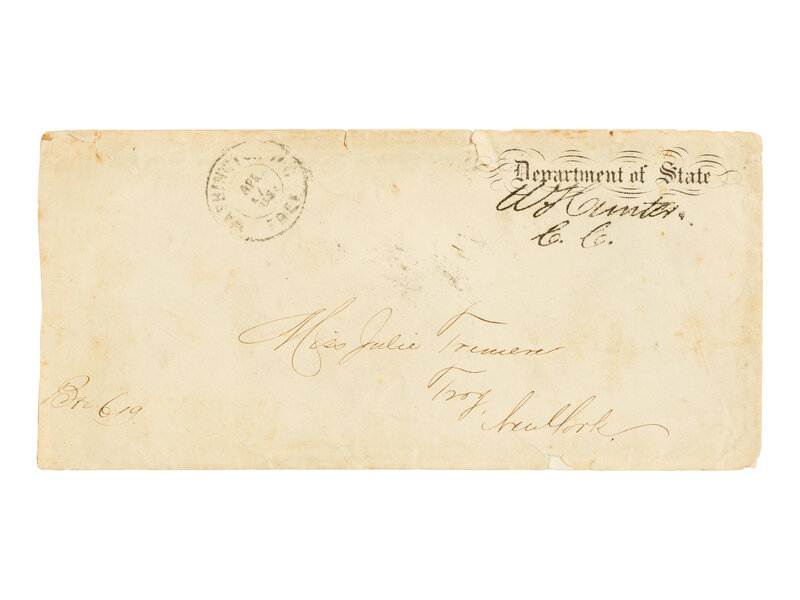 WASHINGTON D.C.
FREE
APR
Department of State
W Hunter.
C. C.
Miss Julie
Troy,
New York.
Box 619.